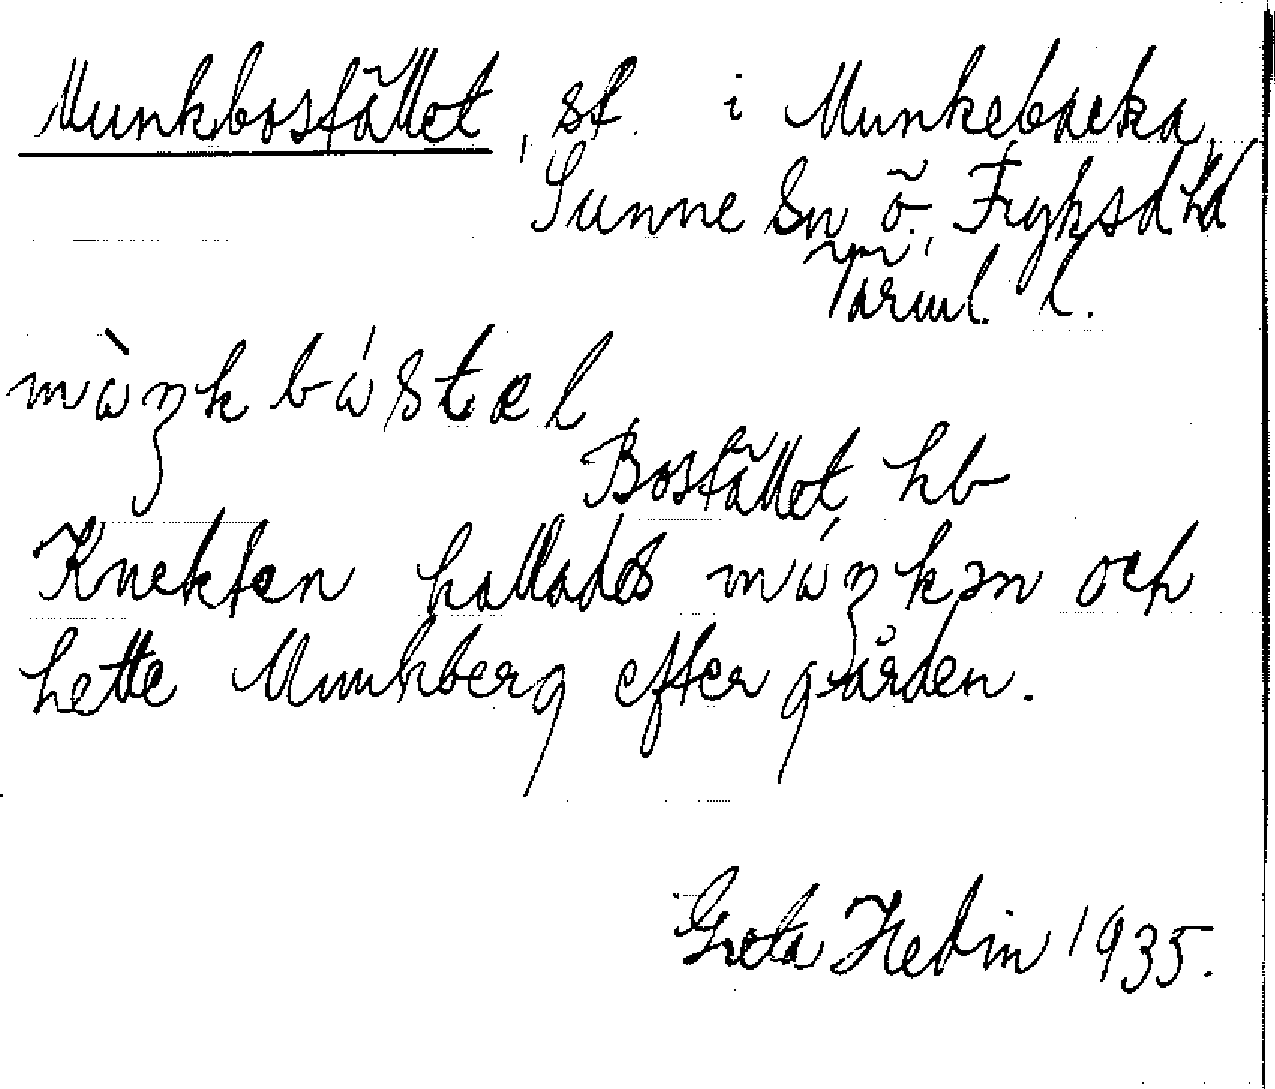 Munkbostället, st. i Munkebacka,
Sunne sn Ö. Fryksd. hd
Värml. l.
mùŋkbústəl
Bostället hb
Knekten kallades múŋkən och
hette Munkberg efter gården.
Greta Hedin 1935.